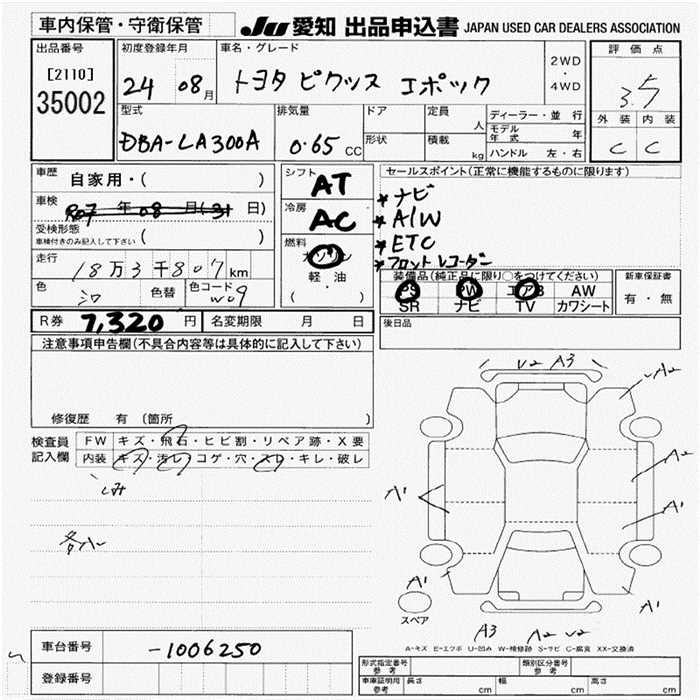 車内保管・守衛保管
JU 愛知 出品申込書 JAPAN USED CAR DEALERS ASSOCIATION
出品番号
[2110]
35002
初度登録年月
24 08月
車名・グレード
トヨタ ピクシス エポック
2WD
・
4WD
評価点
3.5
外装 内装
C C
型式
DBA-LA300A
排気量
0.65 CC
ドア
定員
人
形状
積載
kg
ディーラー・並行
モデル年式 年
ハンドル 左・右
車歴
自家用・( )
車検
R07年08月(31日)
受検形態
車検付きのみ記入して下さい
( )
走行
18万3千807km
色
シロ
色替
色コード
W09
シフト
AT
冷房
AC
燃料
ガソリン
軽・油
( )
セールスポイント(正常に機能するものに限ります)
*ナビ
*A/W
*ETC
*フロントレコーダー
装備品(純正品に限り○をつけてください)
PS PW エアB AW
SR ナビ TV カワシート
新車保証書
有・無
R券 7,320円
名変期限 月 日
後日品
注意事項申告欄(不具合内容等は具体的に記入して下さい)
修復歴 有 〔箇所 〕
検査員
記入欄
FW キズ・飛石・ヒビ割・リペア跡・X要
内装 キズ・汚レ・コゲ・穴・スレ・キレ・破レ
シミ
各小
V2 A3
A2
A2
A1
A1
A1
A1
スペア
A3 A2 V2
A-キズ E-エクボ U-凹み W-補修跡 S-サビ C-腐食 XX-交換済
車台番号
-1006250
登録番号
形式指定番号
参考
類別区分番号
参考
車庫証明用
参考
長さ cm
幅 cm
高さ cm